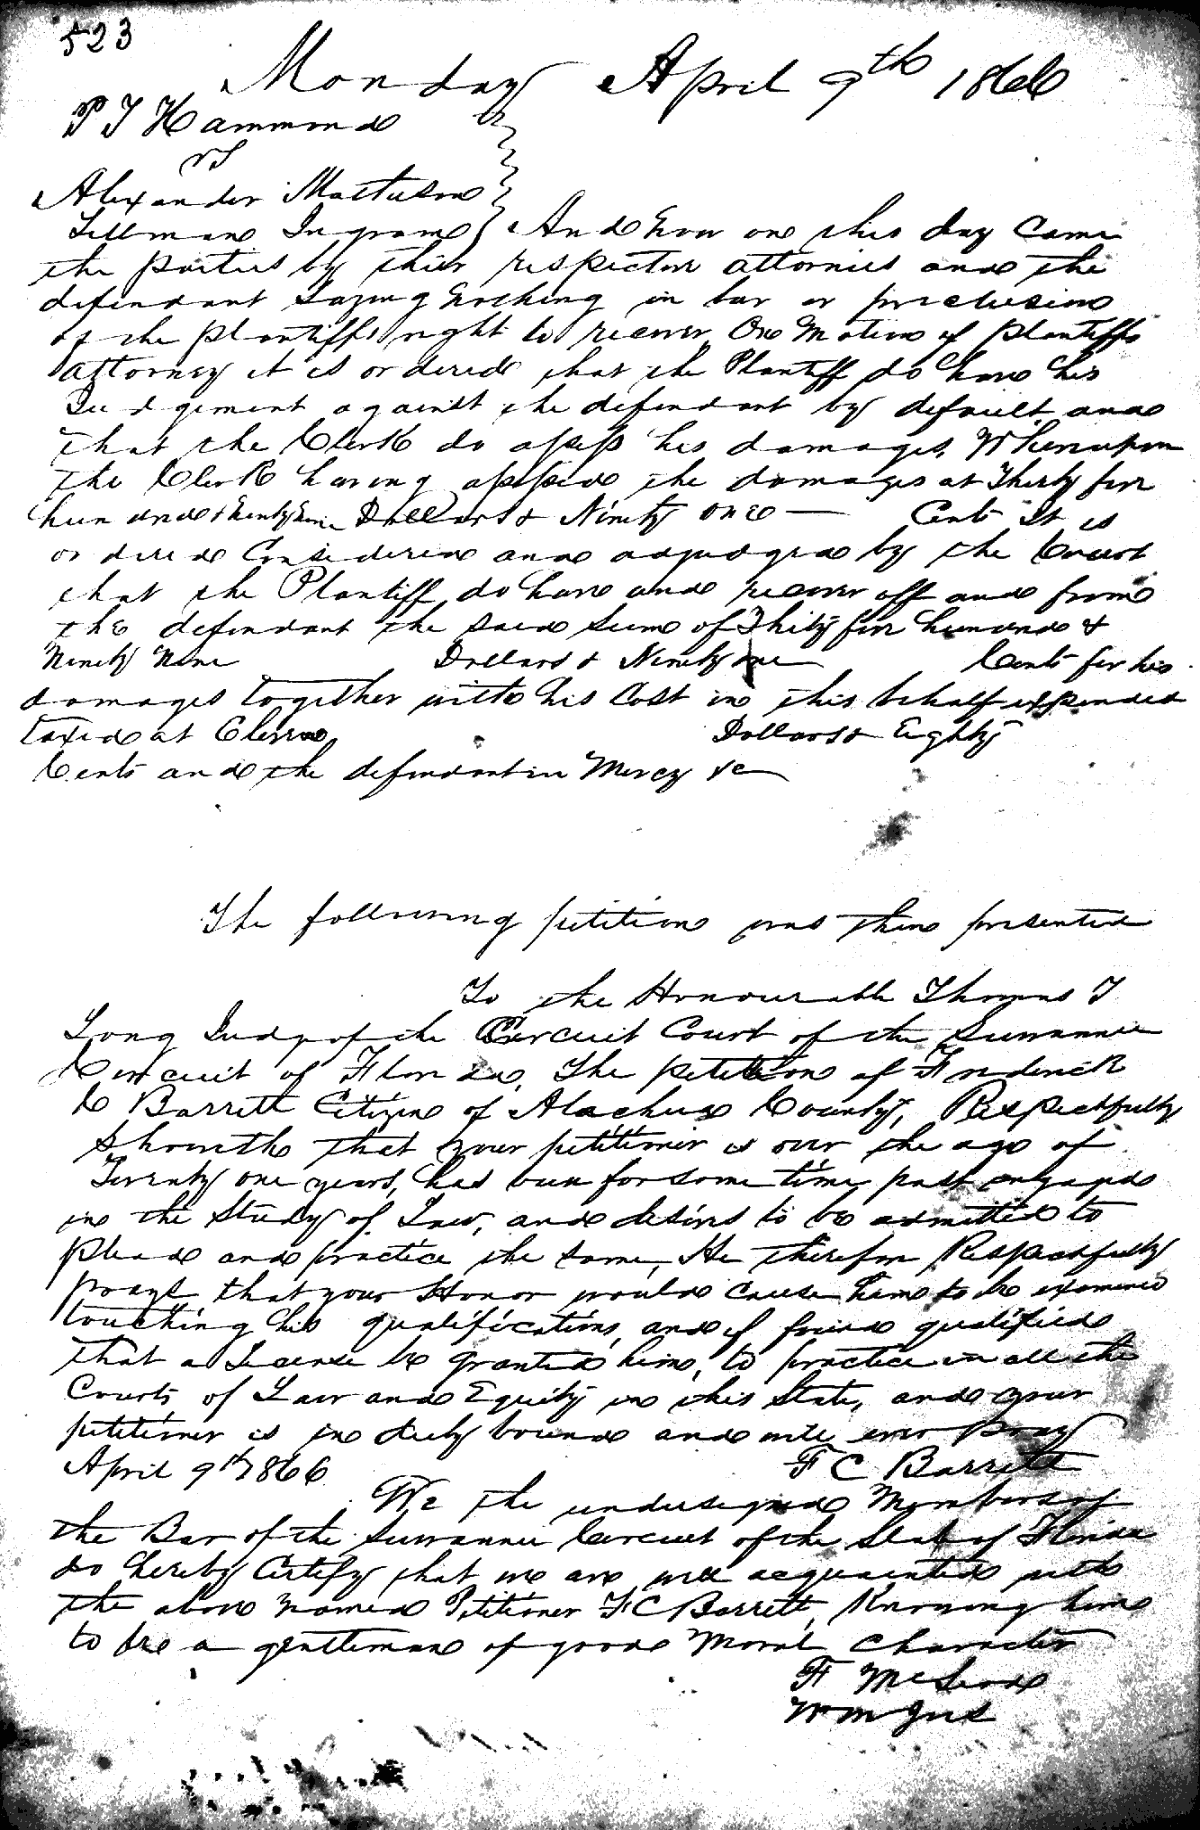 523
Monday April 9th 1866
P T Hammond
vs
Alexander Matteson
Tillman Ingram } And now on this day Came
the parties by thier respective attornies and the
defendant saying nothing in bar or preclusion
of the plantiffs right to recover On Motion of plantiffs
attorney it is ordered that the Plantiff do have his
Judgement against the defendant by default and
that the Clerk do assess his damages, Whereupon
the Clerk having assessed the damages at Thirty five
hundred & Ninety Nine Dollars & Ninety one — Cents It is
ordered Considered and adjudged by the Court
that the Plantiff do have and recover off and from
the defendant the said sum of Thirty five hundred &
Ninety Nine Dollars & Ninety one Cents for his
damages together with his Cost in this behalf expended
taxed at Eleven Dollars & Eighty
Cents and the defendant in Mercy &c
The following petition was then presented
To the Honourable Thomas T
Long Judge of the Circuit Court of the Suwannee
Circuit of Florida, The petition of Frederick
C Barrett Citizen of Alachua County, Respectfully
Showeth that your petitioner is over the age of
Twenty one years, has been for some time past engaged
in the Study of Law, and desires to be admitted to
plead and practice the same, He therefor Respectfully
prays that your Honor would cause him to be examined
touching his qualifications, and if found qualified
that a License be granted him, to practice in all the
Courts of Law and Equity in this State, and your
petitioner is in duty bound and will ever Pray
April 9th 1866 F C Barrett
We the undersigned Members of
the Bar of the Suwannee Circuit of the State of Florida
do hereby Certify that we are well acquainted with
the above named Petitioner F C Barrett, Knowing him
to be a gentleman of good Moral Character
F McLeod